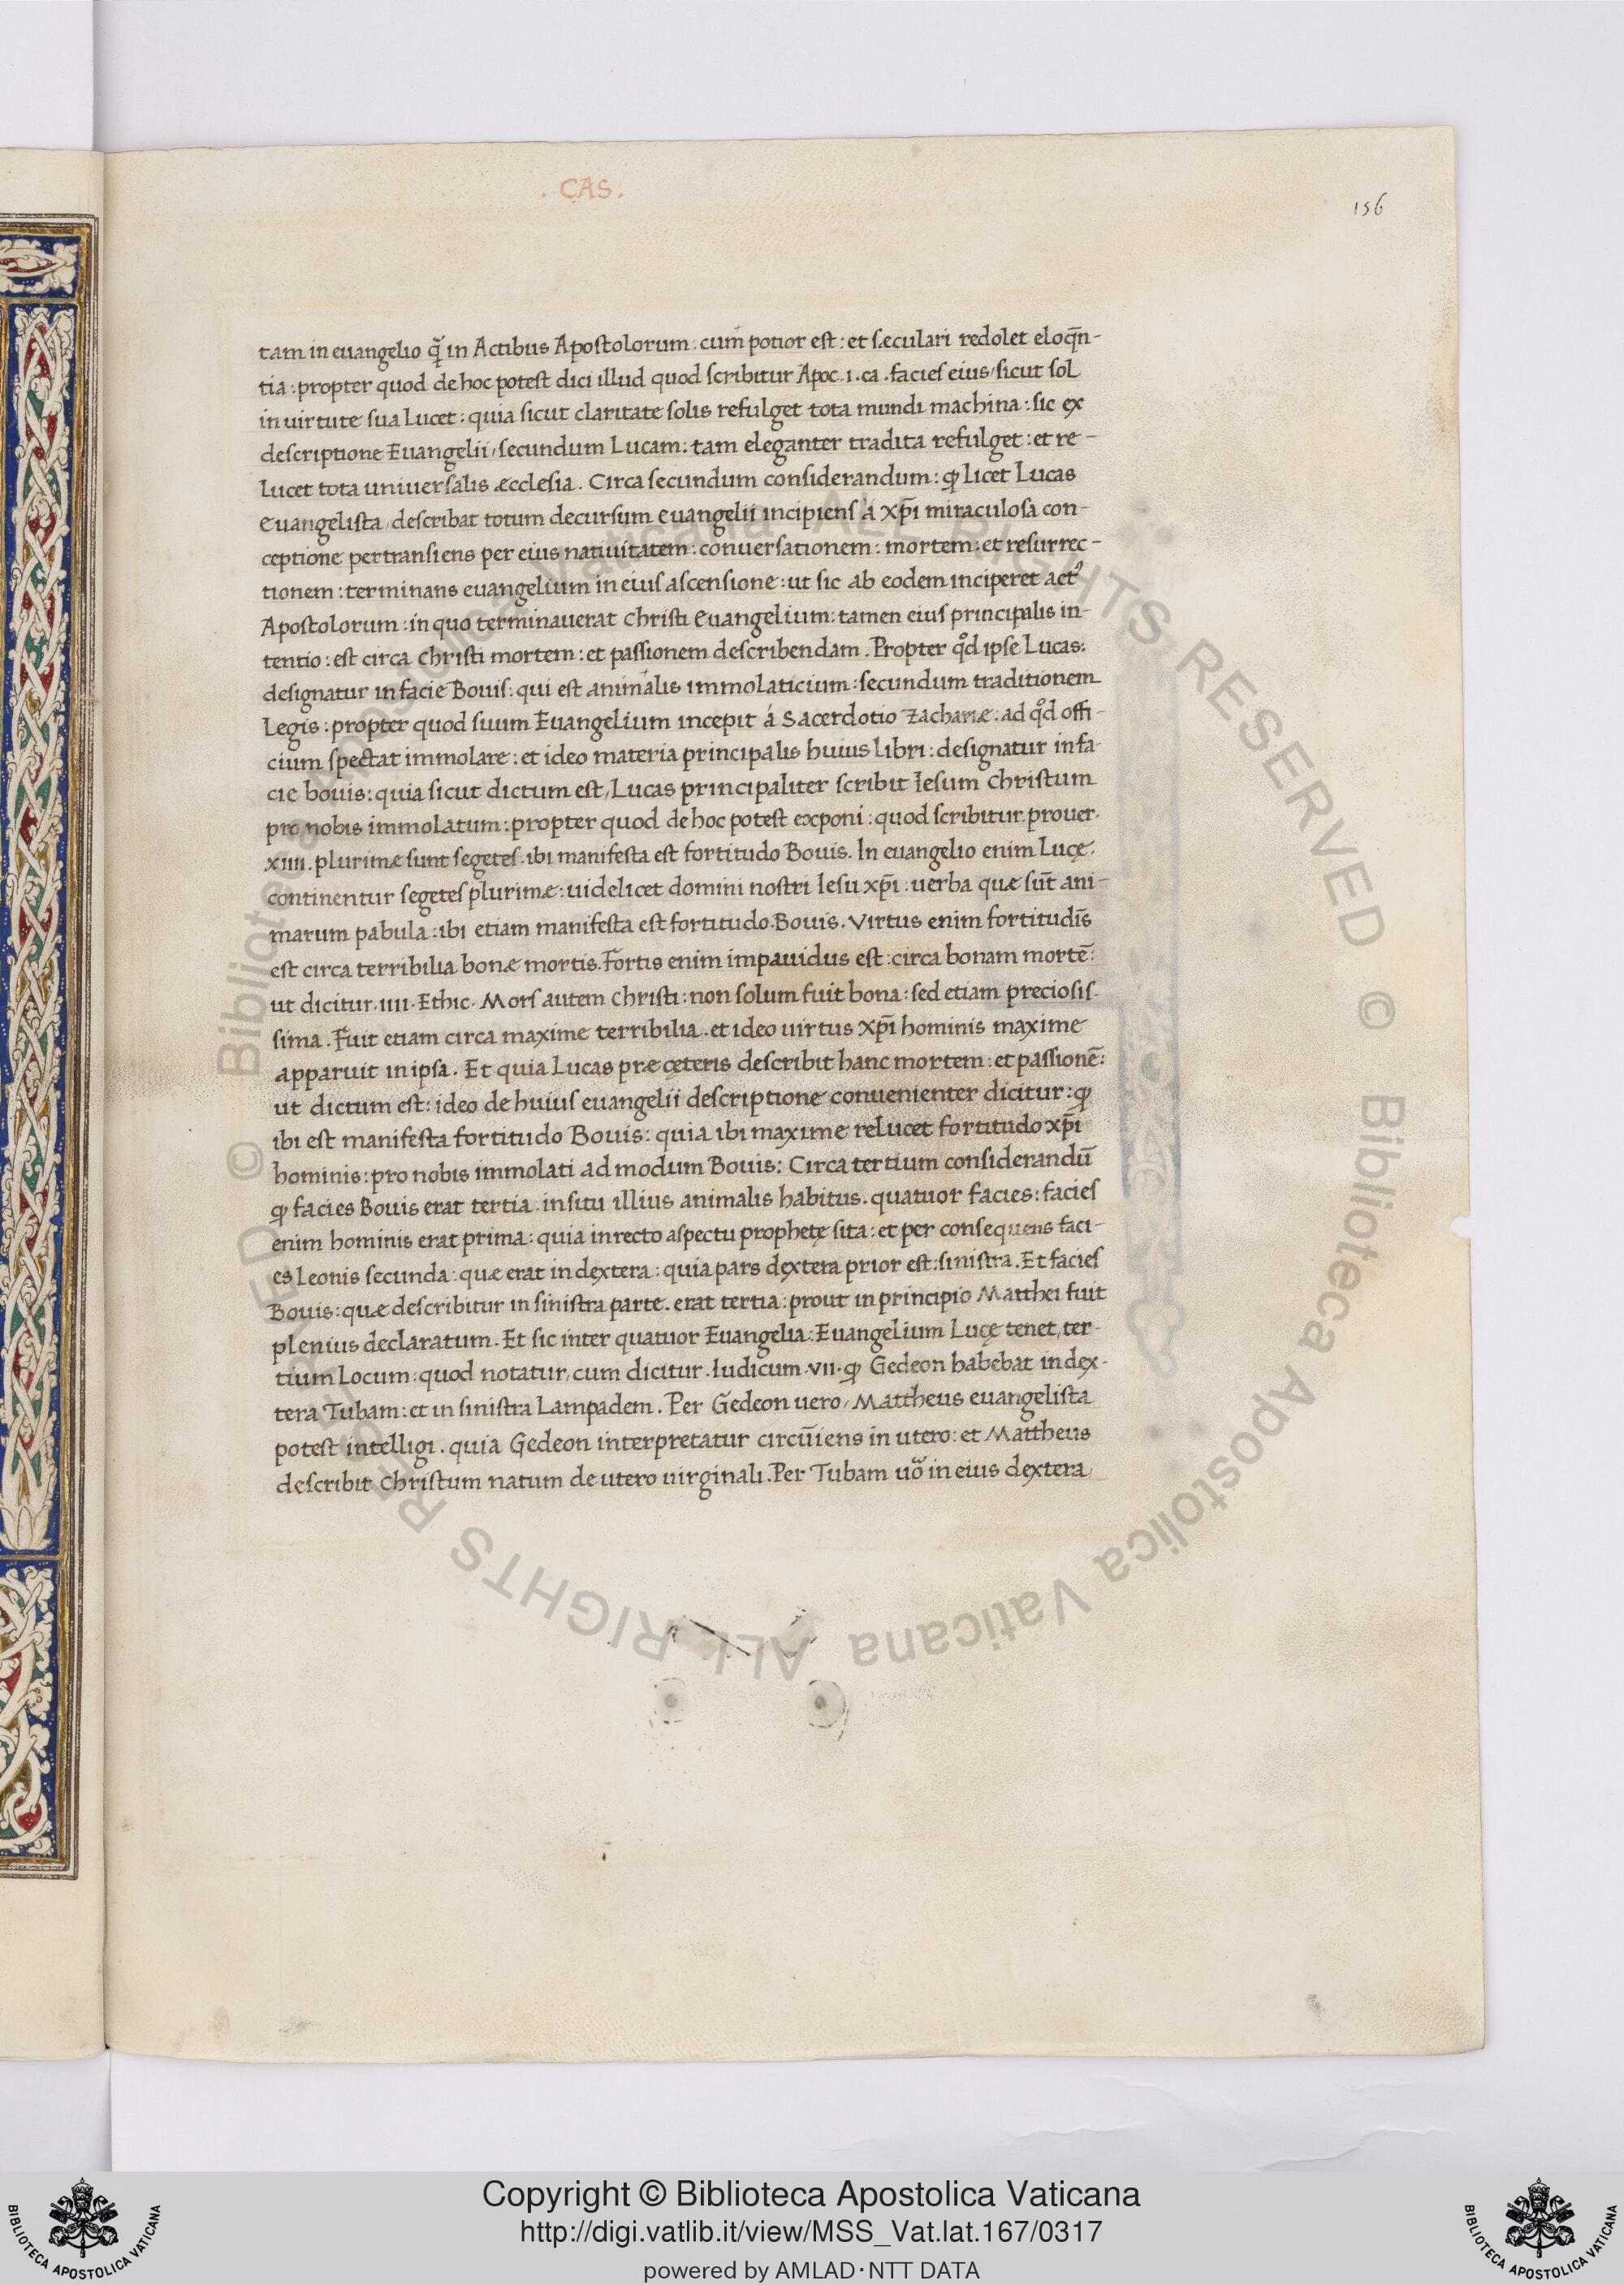 . CAS .
156
tam in euangelio q̃ in Actibus Apostolorum: cum potior est: et sæculari redolet eloq̃n-
tia: propter quod de hoc potest dici illud quod scribitur Apoc. i. ca. facies eius, sicut sol
in uirtute sua Lucet: quia sicut claritate solis refulget tota mundi machina: sic ex
descriptione Euangelii, secundum Lucam: tam eleganter tradita refulget: et re-
Lucet tota uniuersalis æcclesia. Circa secundum considerandum: ꝙ licet Lucas
euangelista, describat totum decursum euangelii incipiens à xp̄i miraculosa con-
ceptione pertransiens per eius natiuitatem: conuersationem: mortem: et resurrec-
tionem: terminans euangelium in eius ascensione: ut sic ab eodem inciperet actꝰ
Apostolorum: in quo terminauerat christi Euangelium: tamen eius principalis in-
tentio: est circa christi mortem: et passionem describendam. Propter qd̓ ipse Lucas:
designatur in facie Bouis: qui est animalis immolaticium: secundum traditionem
Legis: propter quod suum Euangelium incepit á Sacerdotio Zachariæ: ad qd̓ offi-
cium spectat immolare: et ideo materia principalis huius libri: designatur in fa-
cie bouis: quia sicut dictum est, Lucas principaliter scribit Iesum christum
pro nobis immolatum: propter quod de hoc potest exponi: quod scribitur prouer.
xiiii. plurimæ sunt segetes. ibi manifesta est fortitudo Bouis. In euangelio enim Lucę:
continentur segetes plurimæ: uidelicet domini nostri Iesu xp̄i: uerba quæ sūt ani-
marum pabula: ibi etiam manifesta est fortitudo Bouis. Virtus enim fortitudīs
est circa terribilia bonæ mortis. Fortis enim impauidus est: circa bonam mortē:
ut dicitur. iiii. Ethic. Mors autem christi: non solum fuit bona: sed etiam preciosis-
sima. Fuit etiam circa maxime terribilia. et ideo uirtus xp̄i hominis maxime
apparuit in ipsa. Et quia Lucas præ cęteris describit hanc mortem: et passionē:
ut dictum est: ideo de huius euangelii descriptione conuenienter dicitur: ꝙ
ibi est manifesta fortitudo Bouis: quia ibi maxime relucet fortitudo xp̄i
hominis: pro nobis immolati ad modum Bouis: Circa tertium considerandū
ꝙ facies Bouis erat tertia. in situ illius animalis habitus. quatuor facies: facies
enim hominis erat prima: quia in recto aspectu prophetę sita: et per consequens faci-
es Leonis secunda: quæ erat in dextera: quia pars dextera prior est: sinistra. Et facies
Bouis: quæ describitur in sinistra parte. erat tertia: prout in principio Matthei fuit
plenius declaratum. Et sic inter quatuor Euangelia: Euangelium Lucę tenet, ter-
tium Locum: quod notatur, cum dicitur. Iudicum. vii. ꝙ Gedeon habebat in dex-
tera Tubam: et in sinistra Lampadem. Per Gedeon uero, Mattheus euangelista
potest intelligi. quia Gedeon interpretatur circūiens in utero: et Mattheus
describit christum natum de utero uirginali. Per Tubam uõ in eius dextera,
© Biblioteca Apostolica Vaticana ALL RIGHTS RESERVED © Biblioteca Apostolica Vaticana ALL RIGHTS RESERVED
BIBLIOTECA APOSTOLICA VATICANA
Copyright © Biblioteca Apostolica Vaticana
http://digi.vatlib.it/view/MSS_Vat.lat.167/0317
powered by AMLAD·NTT DATA
BIBLIOTECA APOSTOLICA VATICANA